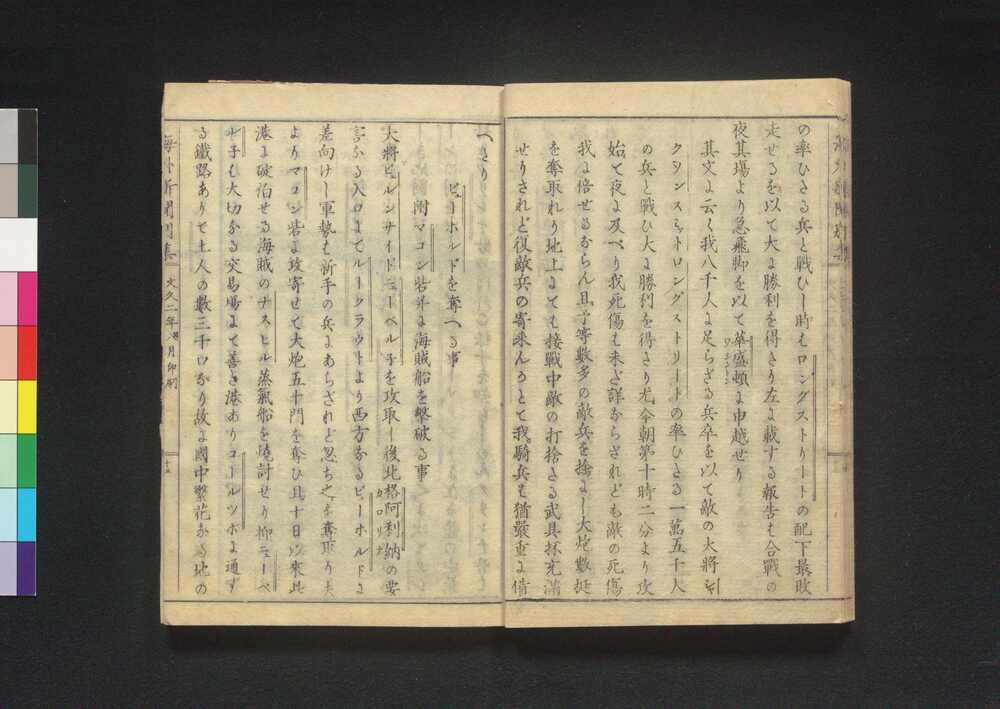 の率ひたる兵と戦ひし時もロングストリートの配下最敗
走せるを以て大に勝利を得たり左に載する報告も合戦の
夜其場より急飛脚を以て華盛頓に申越せり
ワシントン
其文に云く我八千人に足らざる兵卒を以て敵の大將
ロングストリートの率ひたる一萬五千人
の兵と戰ひ大に勝利を得たり尤今朝第十時二分より攻
始て夜に及べり我死傷も未だ詳ならざれども敵の死傷
我に倍せるならん且予等數多の敵兵を擒にし大炮數挺
を奪取れり地上にても接戰中敵の打捨たる武具抔充滿
せりされど復敵兵の寄来んとて我騎兵も猶嚴重に備
へたり
ビューホルドを奪へる事
附マコン砦外に海賊船を撃破る事
大將ビルンサイドニューベルヂを攻取し後北格阿利納の要
カロリナ
害なる入口にてルークラウトより西方なるビューホルドに
差向けし軍勢も新手の兵にあらざれど忽ち之を奪取り夫
よりマコン砦に攻寄せて大炮五十門を奪ひ且十日以來此
港に碇泊せる海賊のナスヒル蒸氣船を燒討せり抑ニューベ
ルヂも大切なる交易場にて善き港ありゴールツホに通ず
る鐵路ありて土人の數三千口なり故に國中繁花なる地の
海外新聞別集
文久二年
八月印刷